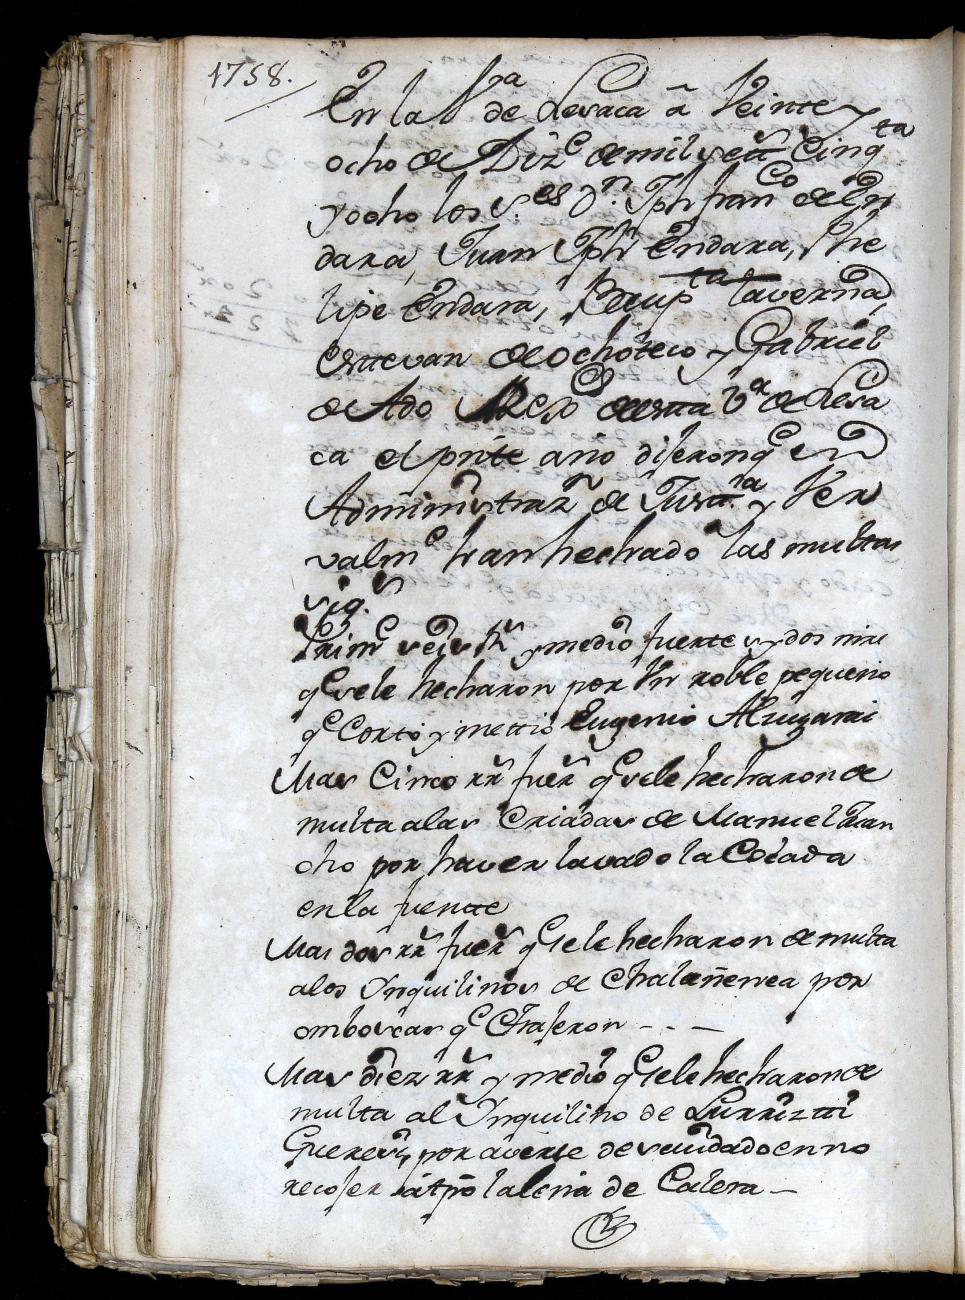 1758.
En la V.ra de Lesaca â Veinte y
ocho de Diz.e de mil set.s Cinq.ta
y ocho los S.res D.n Jph fran.co de En
dara, Juan Jph Endara, Phe
lipe Endara, Baup.ta taverna,
Esttevan de ochoteco y Gabriel
de Ado Rex.s de esta V.a de Lesa
ca el pnte año dijeron q.e en
Administraz.n de Justt.ia y Ver
valm.e han hechado las multas
sig.s
Prim.e seis rr.s y medio fuertes y dos mrs
q.e se le hecharon por Un roble pequeño
q.e Corto y mettio Eugenio Alzugarai
Mas Cinco rr.s fuer.s q.e se le hecharon de
multa a las Criadas de Manuel San
cho por haver lavado la Colada
en la fuentte
Mas dos rr.s fuer.s q.e se le hecharon de multa
a los Ynquilinos de Chalañenea por
omboscas q.e Trajeron - - -
Mas diez rr.s y medio q.e se le hecharon de
multa al Ynquilino de Lurrizti
Gueres, por averse descuidado en no
recojer a tpo la leña de Calera -